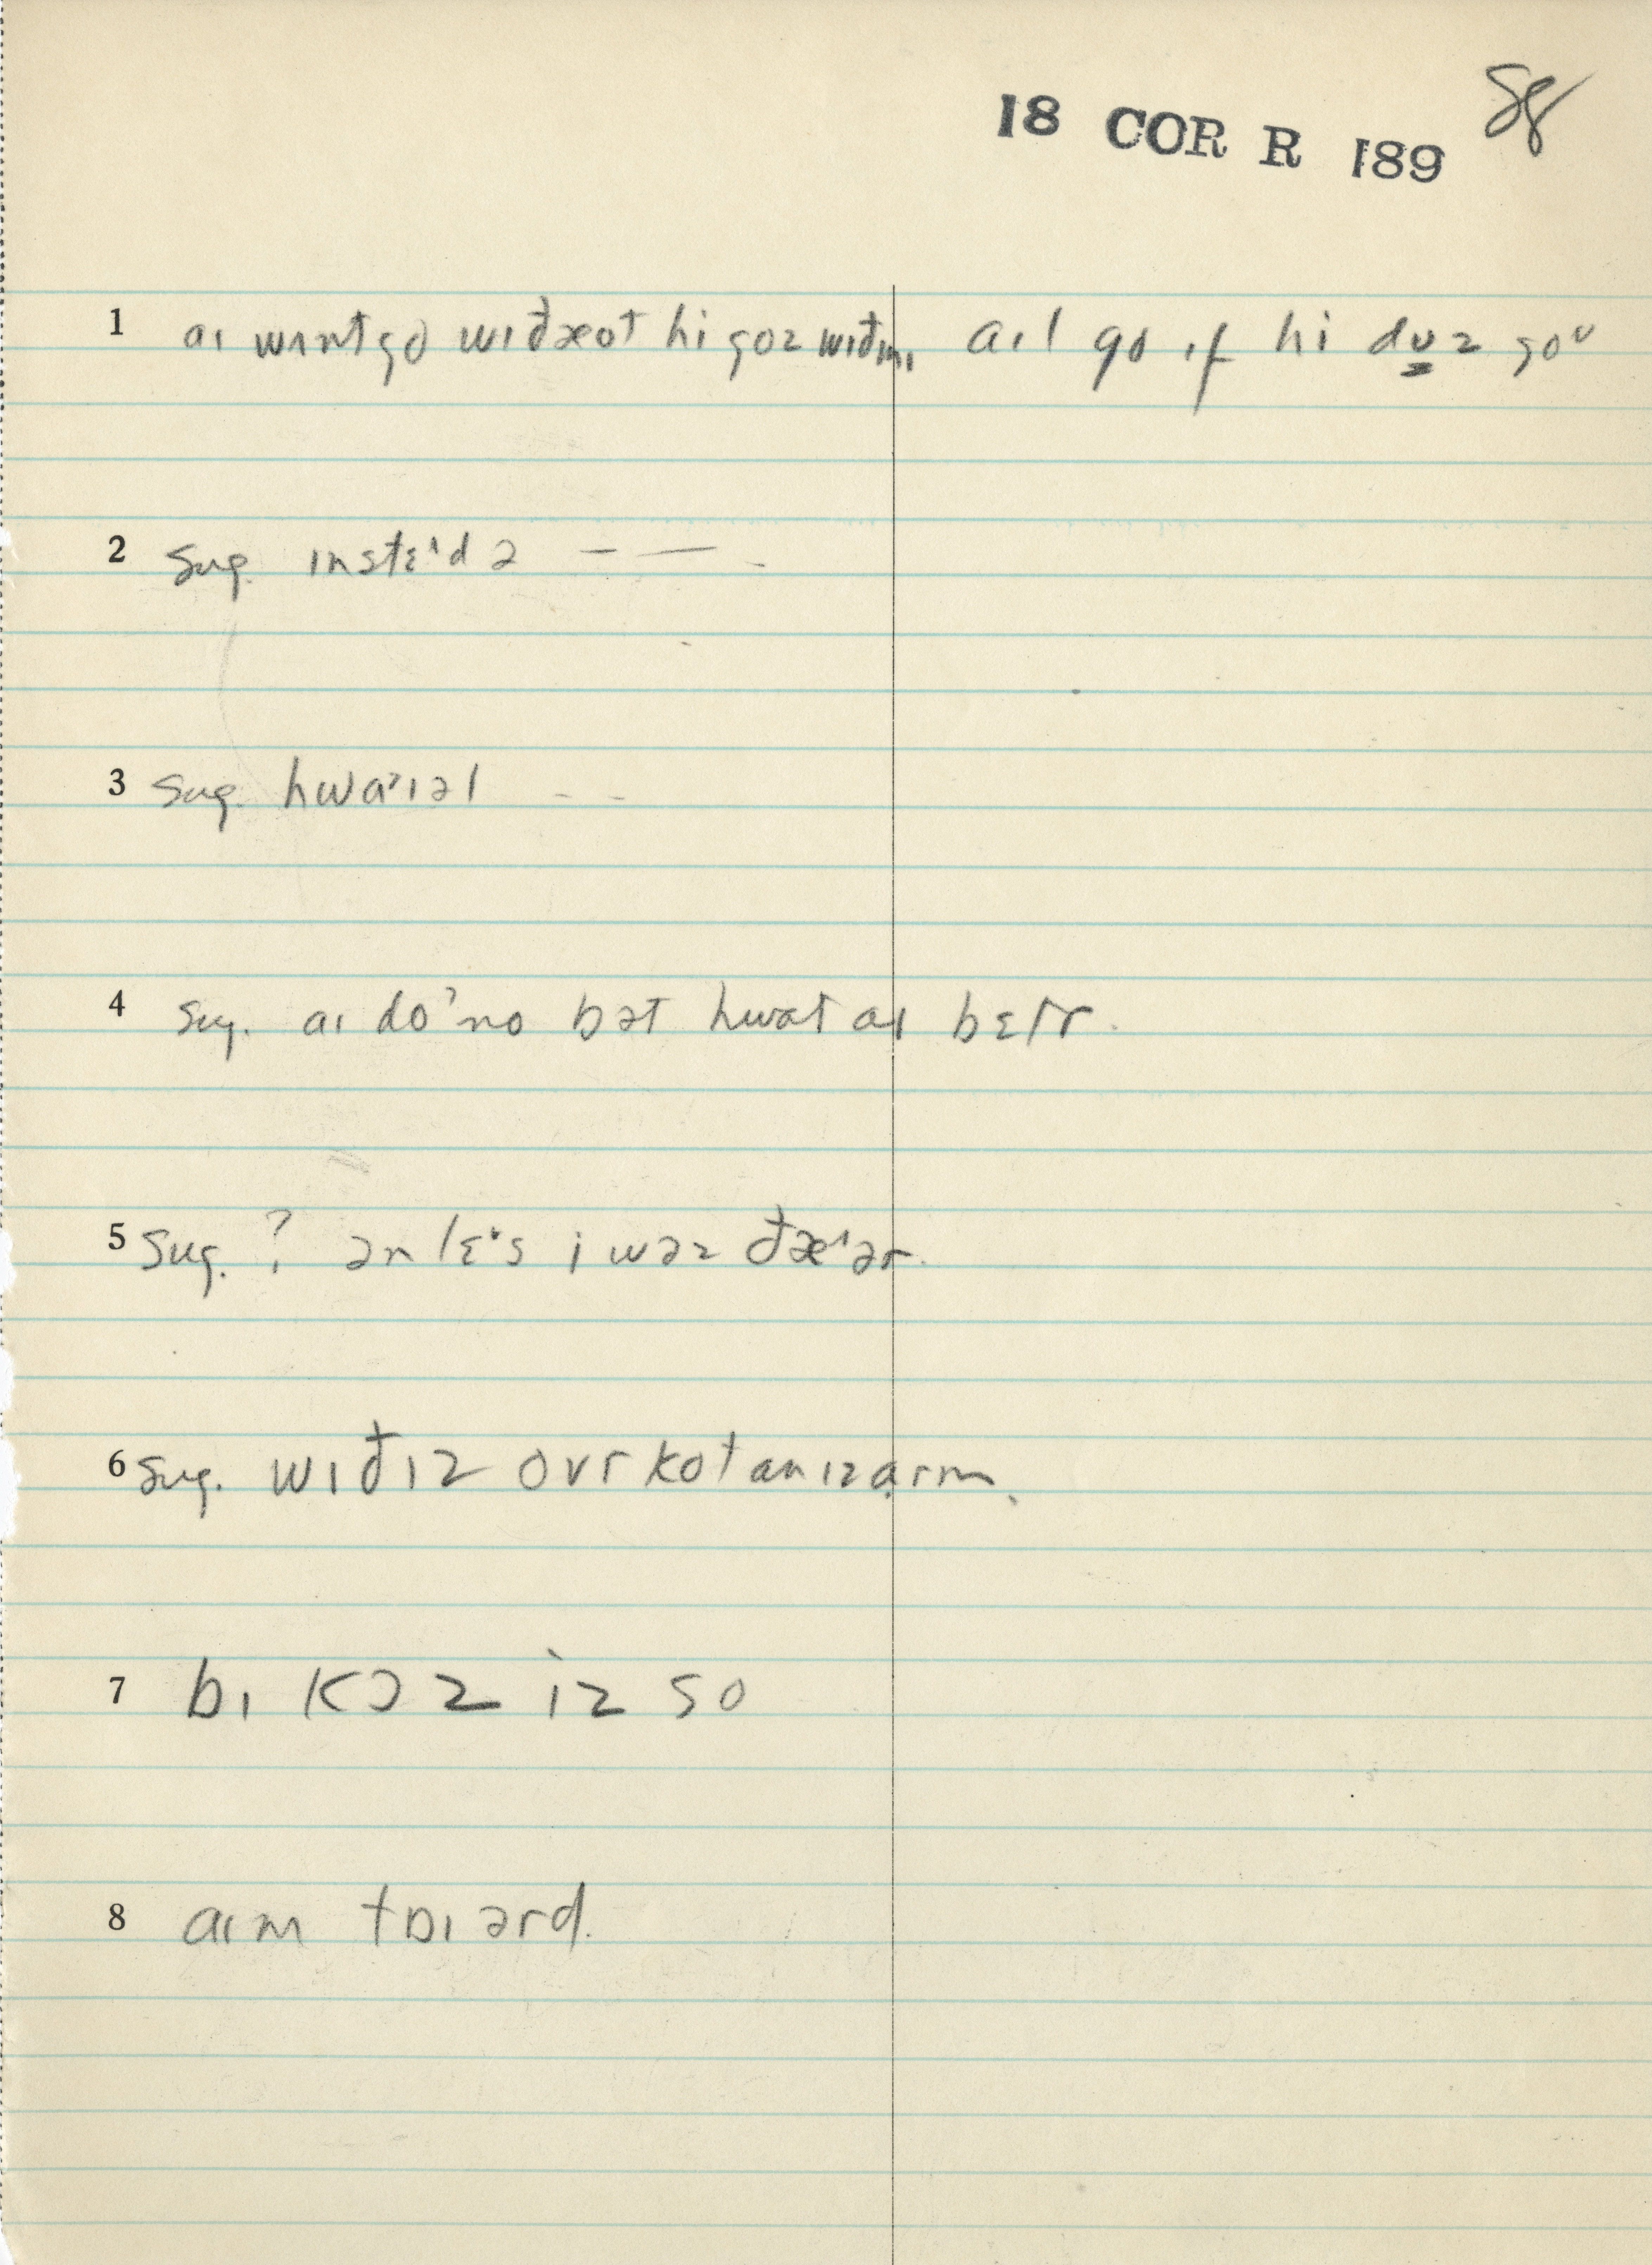 18 COR R 189 58
1 aɪ wɪntgo wɪđæot hi goz wɪđmɪ aɪl go ɪf hi dʋz goᵘ
2 sug. ɪnstɛ'd ə — —
3 sug. hwa'ɪəl - -
4 sug. aɪ do'no bət hwat aɪ bɛtr.
5 sug. ? ənlɛ's i wəz đæ'ər.
6 sug. wɪđɪz ovr kot an ɪz arm.
7 bɪ kɔz iz so
8 aɪm tɒɪərd.